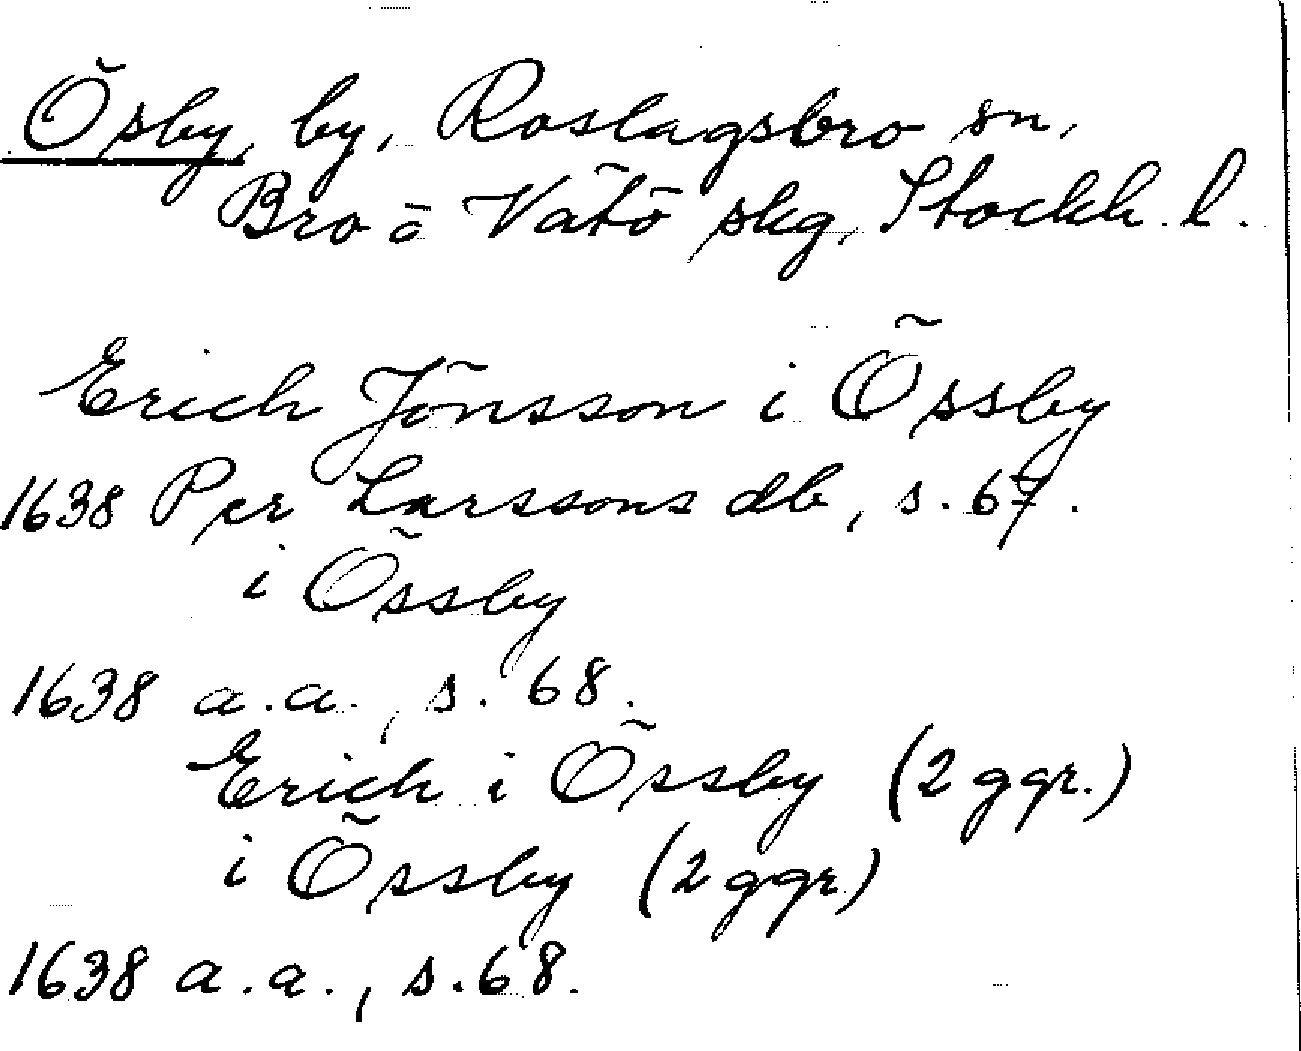 Ösby, by, Roslagsbro sn,
Bro o Vätö skg, Stockh. l.
Erich Jönsson i Össby
1638 Per Larssons db, s. 67.
i Össby
1638 a.a., s. 68.
Erich i Össby (2 ggr.)
i Össby (2 ggr.)
1638 a.a., s. 68.